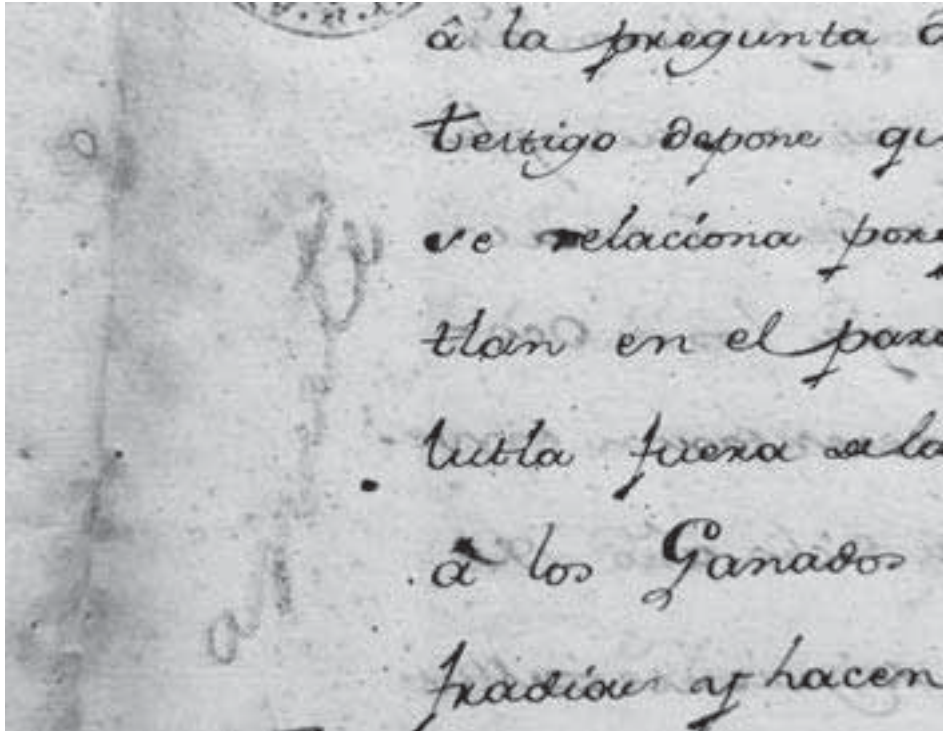 â la pregunta
Testigo depone qu
se relaciona porq
tlan en el para
tutla fuera de la
â los Ganados
fradias y hacen